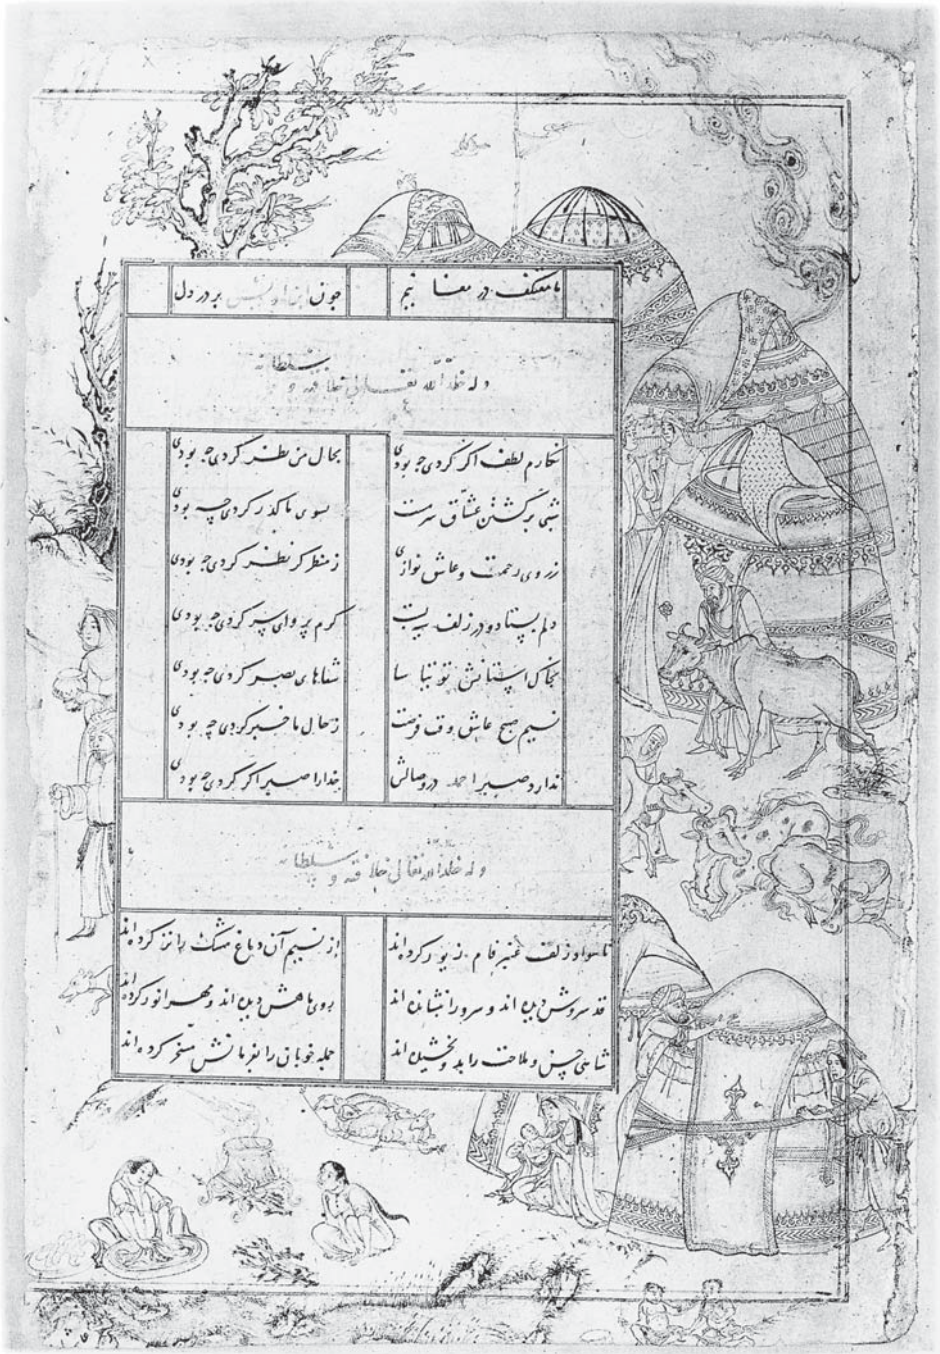 ما معتکف در مغا نیم چون بر در دل
وله خلد الله تعالی خلافته و سلطانه
نگارم لطف اگر کردی چه بودی بحال من نظر کردی چه بودی
شبی بر کشتن عشاق سرمست بسوی ما گذر کردی چه بودی
ز روی رحمت و عاشق نوازی ز منظر گر نظر کردی چه بودی
دلم در زلف کرم پروای سر کردی چه بودی
بخاک آستانش توتیا سا شفاهای بصر کردی چه بودی
نسیم صبح عاشق وقت فرصت ز حال ما خبر کردی چه بودی
ندارد صبر احمد در وصالش خدارا صبر اگر کردی چه بودی
وله خلد الله تعالی خلافته و سلطانه
تا سواد زلف عنبر فام زیور کرده‌اند از نسیم آن دماغ مشک را تر کرده‌اند
قد سروش دیده اند و سرو را بنشانده اند روی ماهش دیده اند و مهر انور کرده‌اند
شاهی حسن و ملاحت را بدو بخشیده اند جمله خوبان را بفرمانش مسخر کرده‌اند